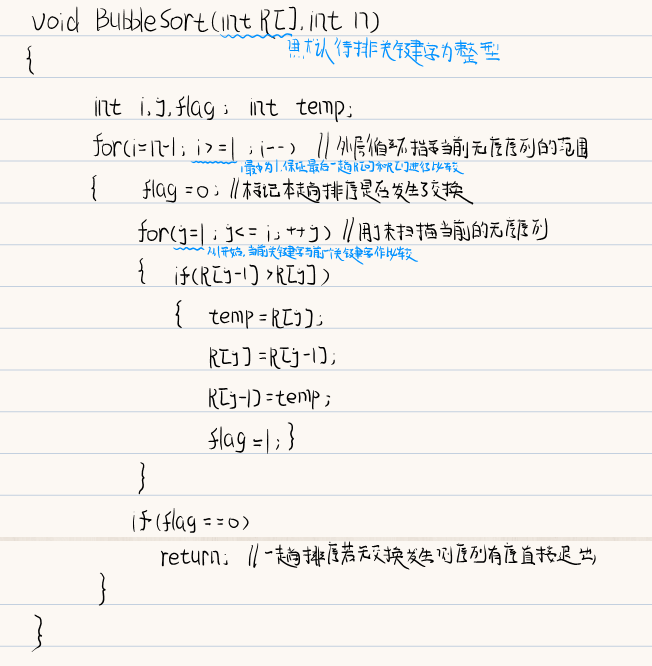 void BubbleSort(int R[],int n)
默认待排关键字为整型
{
int i,j,flag; int temp;
for(i=n-1; i>=1; i--) //外层循环指导当前无序序列的范围
i最小为1,保证最后一趟R[0]和R[1]进行比较
{ flag=0; //标记本趟排序是否发生了交换
for(j=1; j<=i; ++j) //用于扫描当前的无序序列
从1开始,当前关键字与前一关键字作比较
{ if(R[j-1]>R[j])
{ temp=R[j];
R[j]=R[j-1];
R[j-1]=temp;
flag=1; }
}
if(flag==0)
return; //一趟排序若无交换发生则序列有序直接退出
}
}